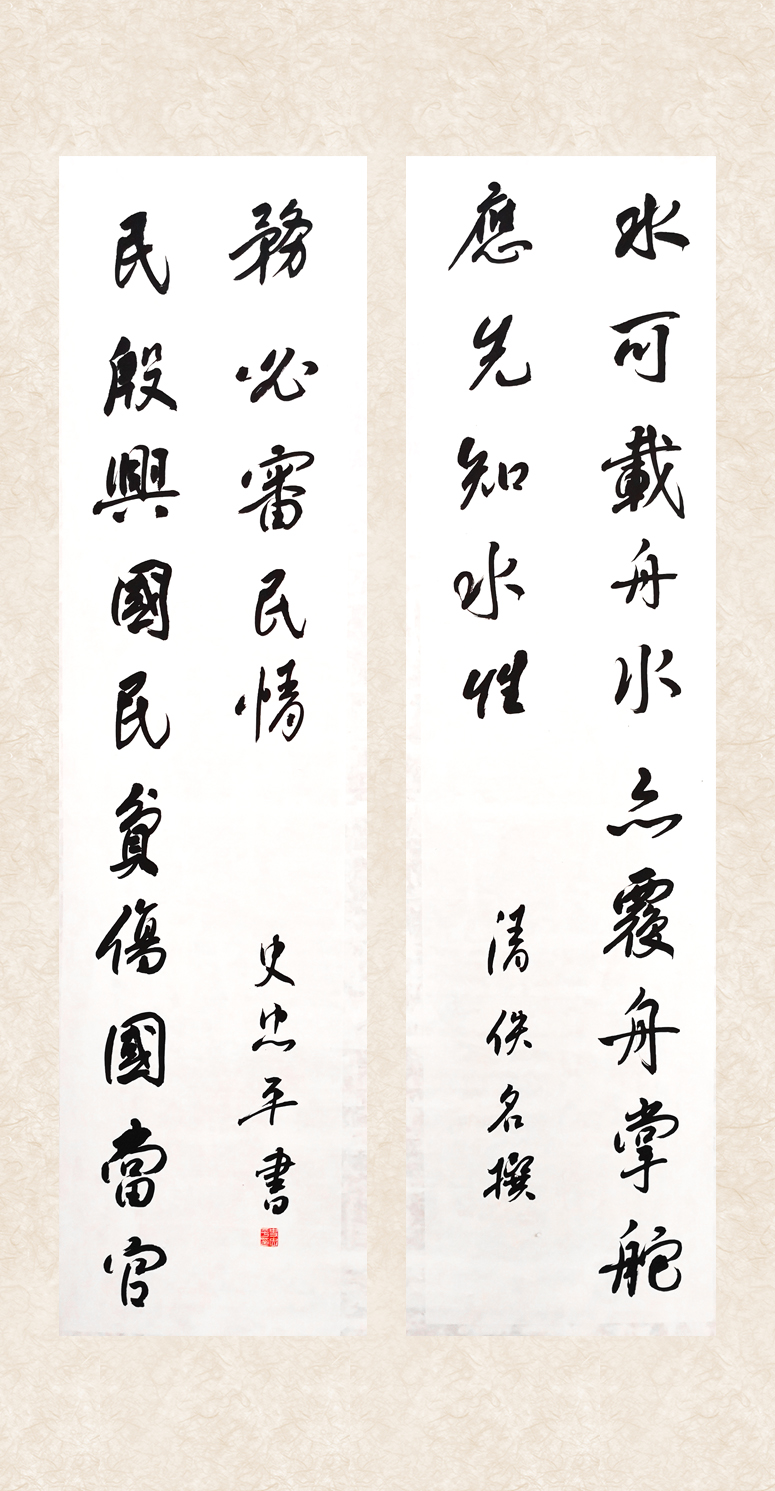 水可載舟水亦覆舟掌舵
應先知水性
清佚名撰
民殷興國民貧傷國當官
務必審民情
史忠平書